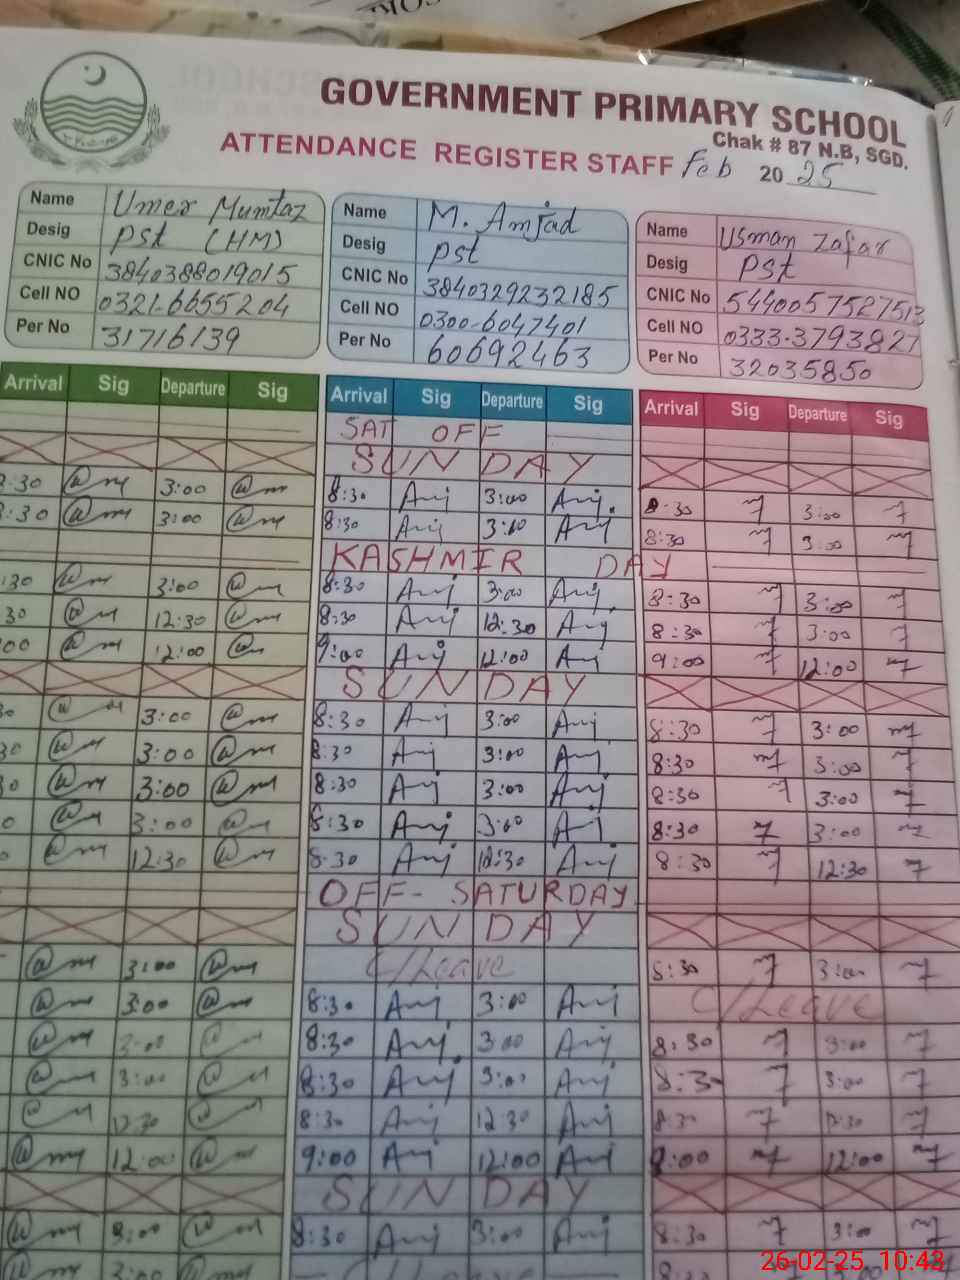 GOVERNMENT PRIMARY SCHOOL
Chak # 87 N.B, SGD.
ATTENDANCE REGISTER STAFF Feb 2025
Name Umer Mumtaz
Desig PST (HM)
CNIC No 3840388019015
Cell NO 0321-6655204
Per No 31716139
Name M. Amjad
Desig PST
CNIC No 3840329232185
Cell NO 0300-6047401
Per No 60692463
Name Usman Zafar
Desig PST
CNIC No 5440057527513
Cell NO 0333-3793827
Per No 32035850
Arrival Sig Departure Sig Arrival Sig Departure Sig Arrival Sig Departure Sig
SAT OFF
SUNDAY
8:30 3:00 8:30 Amj 3:00 Amj 8:30 3:00
8:30 3:00 8:30 Amj 3:00 Amj 8:30 3:00
KASHMIR DAY
:30 3:00 8:30 Amj 3:00 Amj 8:30 3:00
30 12:30 8:30 Amj 12:30 Amj 8:30 3:00
00 12:00 9:00 Amj 12:00 Amj 9:00 12:00
SUNDAY
30 3:00 8:30 Amj 3:00 Amj 8:30 3:00
30 3:00 8:30 Amj 3:00 Amj 8:30 3:00
0 3:00 8:30 Amj 3:00 Amj 8:30 3:00
0 3:00 8:30 Amj 3:00 Amj 8:30 3:00
12:30 8:30 Amj 12:30 Amj 8:30 12:30
OFF-SATURDAY
SUNDAY
3:00 C/Leave 8:30 3:00
3:00 8:30 Amj 3:00 Amj C/Leave
3:00 8:30 Amj 3:00 Amj 8:30 3:00
3:00 8:30 Amj 3:00 Amj 8:30 3:00
12:30 8:30 Amj 12:30 Amj 8:30 12:30
12:00 9:00 Amj 12:00 Amj 9:00 12:00
SUNDAY
3:00 8:30 Amj 3:00 Amj 8:30 3:00
C/Leave
26-02-25 10:43